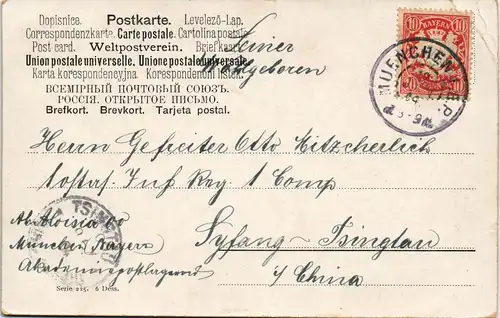 Dopisnice. Postkarte. Levelező-Lap.
Correspondenzkarte. Carte postale. Cartolina postale.
Post card. Weltpostverein. Briefkaart.
Union postale universelle. Unione postale universale.
Karta korespondencyjna. Korespondenční lístek.
ВСЕМІРНЫЙ ПОЧТОВЫЙ СОЮЗЪ.
РОССІЯ. ОТКРЫТОЕ ПИСЬМО.
Brefkort. Brevkort. Tarjeta postal.
Seiner
Wohlgeboren
BAYERN
10 10
10 10
MUENCHEN
Herrn Gefreiter Otto Nitzcherlich
Inf Reg 1 Comp
TSINGTAU
Ab. Aloisia
München Bayern
Akademiepostlagernd
Syfang - Tsingtau
i/ China
Serie 215. 6 Dess.